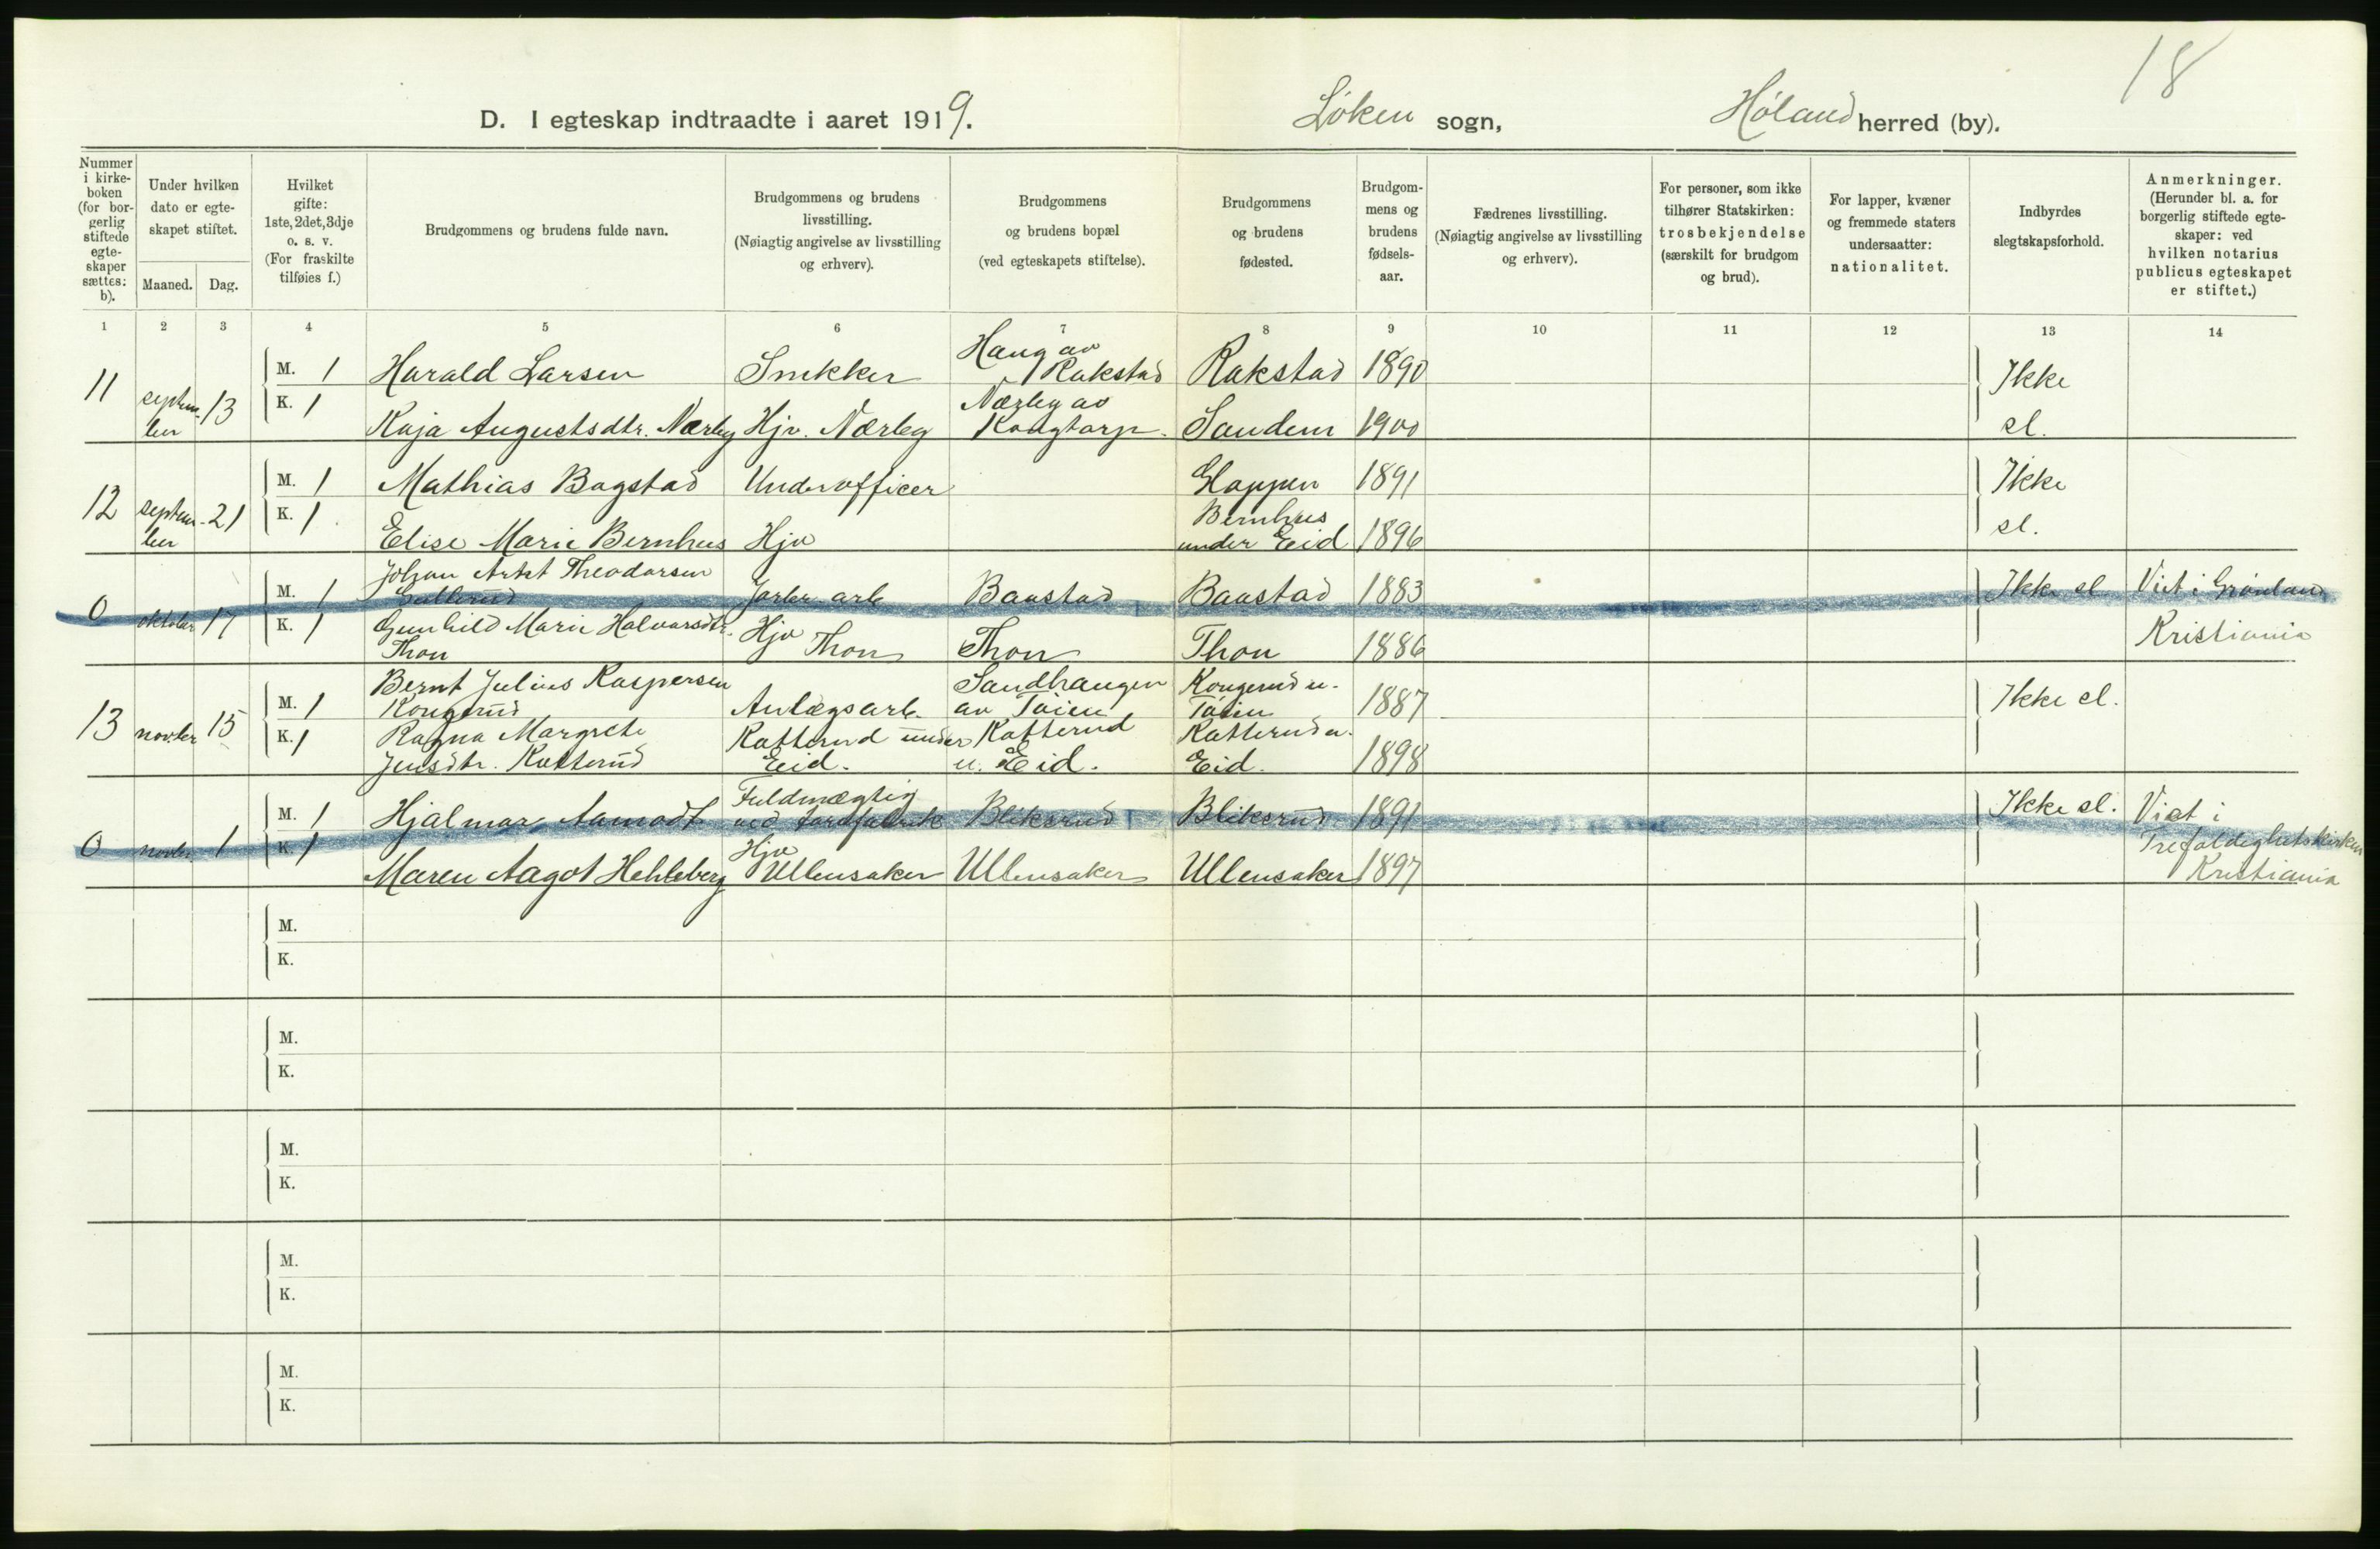 18
D. I egteskap indtraadte i aaret 1919. Løken sogn, Høland herred (by).
Nummer i kirke-boken (for bor-gerlig stiftede egte-skaper sættes: b).
Under hvilken dato er egte-skapet stiftet.
Maaned. Dag.
Hvilket gifte: 1ste, 2det, 3dje o. s. v. (For fraskilte tilføies f.)
Brudgommens og brudens fulde navn.
Brudgommens og brudens livsstilling. (Nøiagtig angivelse av livsstilling og erhverv).
Brudgommens og brudens bopæl (ved egteskapets stiftelse).
Brudgommens og brudens fødested.
Brudgom-mens og brudens fødsels-aar.
Fædrenes livsstilling. (Nøiagtig angivelse av livsstilling og erhverv).
For personer, som ikke tilhører Statskirken: trosbekjendelse (særskilt for brudgom og brud).
For lapper, kvæner og fremmede staters undersaatter: nationalitet.
Indbyrdes slegtskapsforhold.
Anmerkninger. (Herunder bl. a. for borgerlig stiftede egte-skaper: ved hvilken notarius publicus egteskapet er stiftet.)
1 2 3 4 5 6 7 8 9 10 11 12 13 14
11 septem-ber 13
M. 1 Harald Larsen Snekker Haug av Rakstad Rakstad 1890 Ikke
K. 1 Kaja Augustsdtr. Nærby Hjv. Nærby Nærby av Kragtorp Sandem 1900 sl.
12 septem-ber 21
M. 1 Mathias Bogstad Underofficer Gloppen 1891 Ikke
K. 1 Elise Marie Bernhus Hjv Bernhus under Eid 1896 sl.
0 oktober 17
M. 1 Johan Artet Theodorsen Gullerud Jordbr arb Baustad Baustad 1883 Ikke sl Viet i Grønland
K. 1 Gunhild Marie Halvorsdtr. Thon Hjv Thon Thon Thon 1886 Kristiania
13 novber 15
M. 1 Bernt Julius Kaspersen Kongerud Anlægsarb. Sandhaugen av Tøien Kongerud u. Tøien 1887 Ikke sl.
K. 1 Ragna Margrete Jensdtr. Katterud Katterud under Eid. Katterud u. Eid. Katterud u. Eid. 1898
0 novber 1
M. 1 Hjalmar Aamodt Fuldmægtig ved Bliksrud Bliksrud 1891 Ikke sl. Viet i
K. 1 Maren Aagot Hehleberg Hjv Ullensaker Ullensaker Ullensaker 1897 Trefoldighetskirken Kristiania
M.
K.
M.
K.
M.
K.
M.
K.
M.
K.